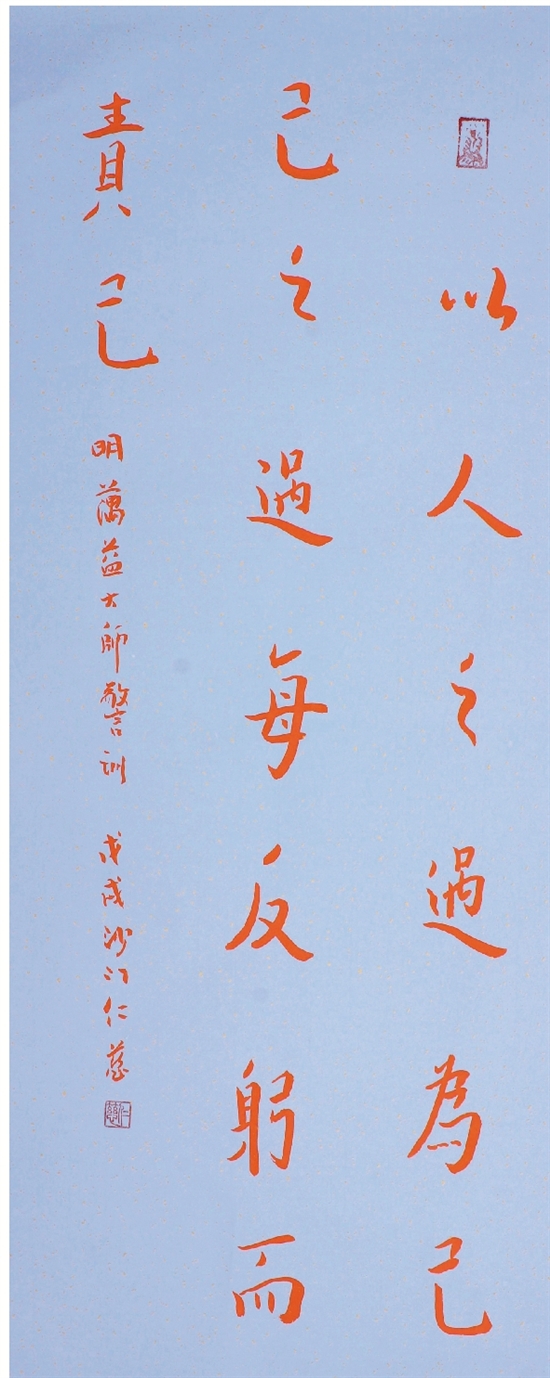 以人之過為己
己之過每反躬而
責己 明蕅益大師警訓 戊戌沙門仁慈
仁慈